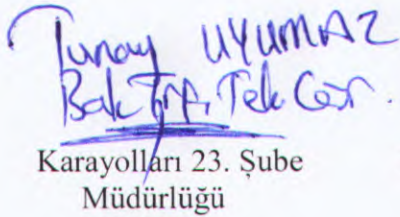 Tunay UYUMAZ
Bak. Trf. Tek Gör.
Karayolları 23. Şube
Müdürlüğü